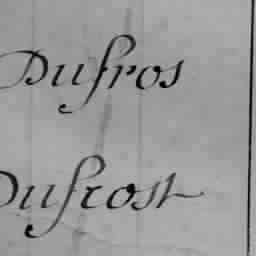 Dufros
Dufrost